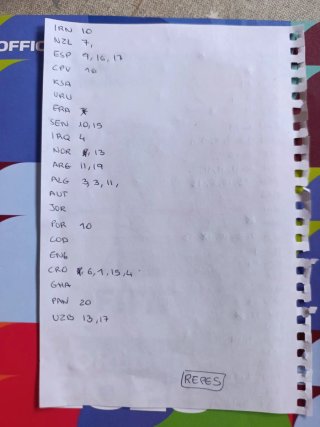 OFFIC
IRN 10
NZL 7,
ESP 9, 16, 17
CPV 16
KSA
URU
FRA
SEN 10, 15
IRQ 4
NOR 13
ARG 11, 19
ALG 3, 3, 11,
AUT
JOR
POR 10
COD
ENG
CRO 6, 1, 15, 4
GHA
PAN 20
UZB 13, 17
REPES